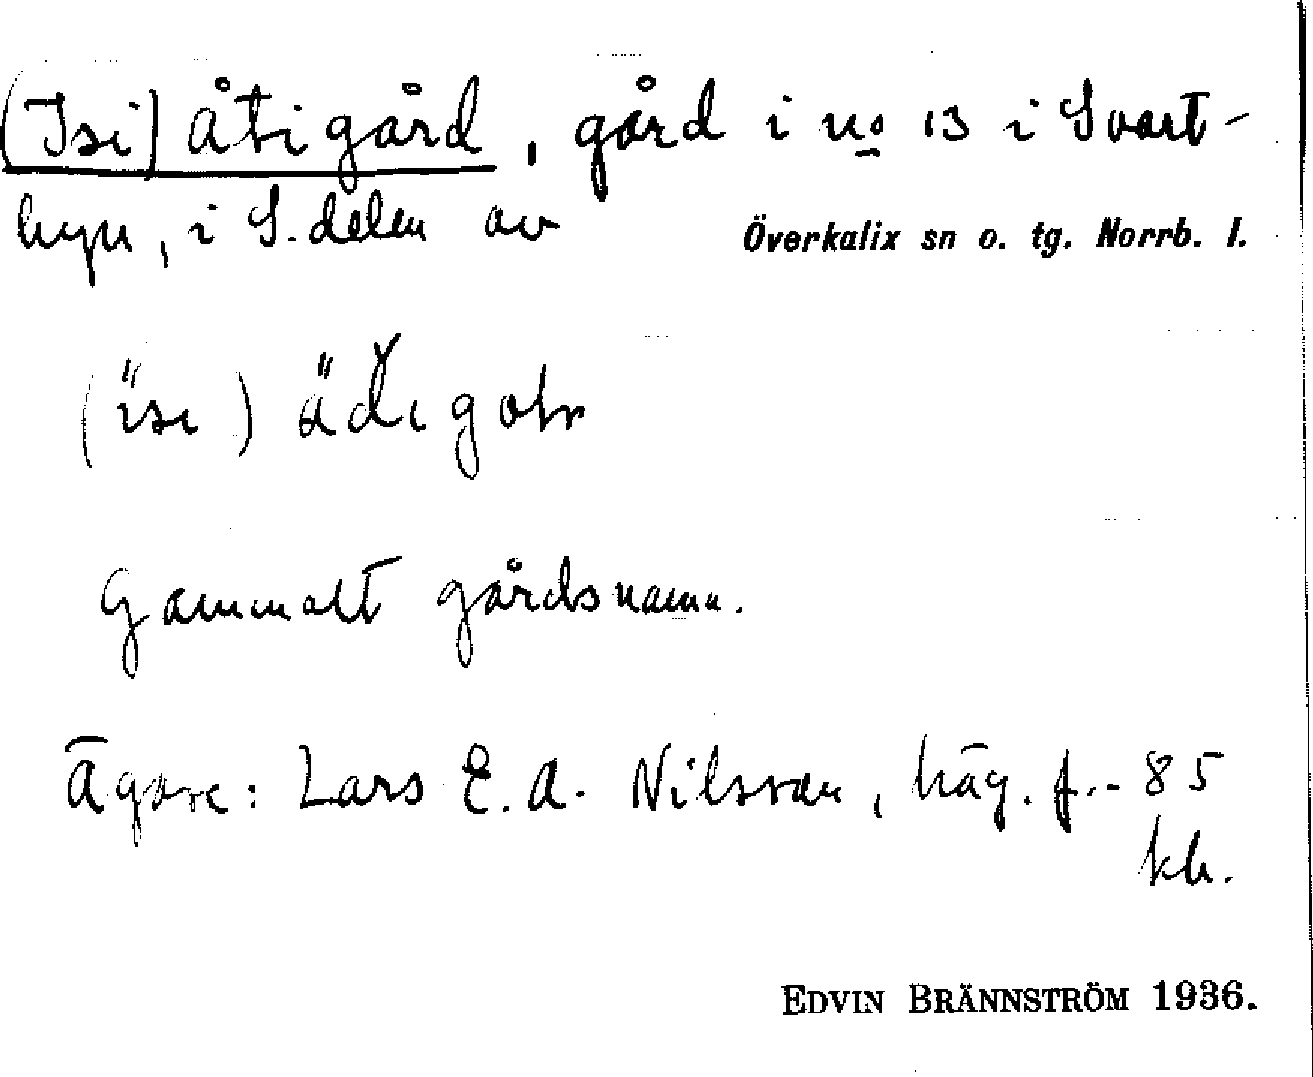 (Isi) åtigård, gård i no 13 i Svart-
byn, i S. delen av Överkalix sn o. tg. Norrb. l.
Gammalt gårdsnamn.
Ägare: Lars E. A. Nilsson, häg. f. -85
kh.
EDVIN BRÄNNSTRÖM 1936.